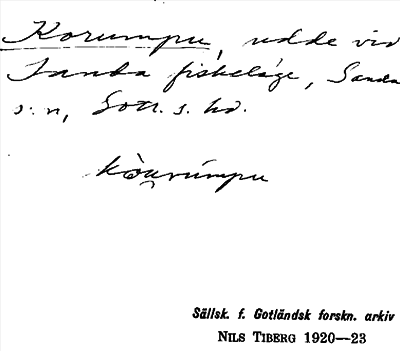 Korumpu, udde vid
Sanda fiskeläge, Sanda
s:n, Gotl. s. hd.
kòurúmpu
Sällsk. f. Gotländsk forskn. arkiv
NILS TIBERG 1920—23